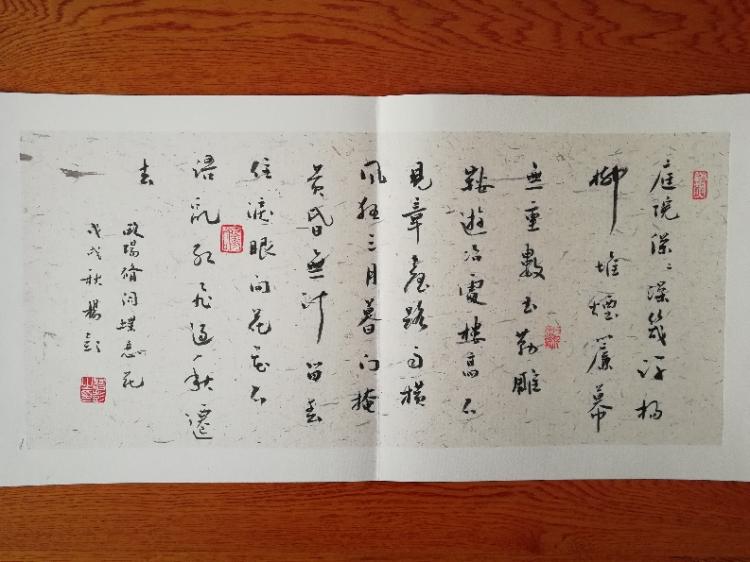 庭院深〻深幾許楊
柳堆煙簾幕
無重數玉勒雕
鞍遊冶處樓高不
見章臺路雨橫
風狂三月暮門掩
黃昏無計留春
住淚眼問花花不
語亂紅飛過秋遷
去
歐陽脩詞蝶恋花
戊戌秋楊彭